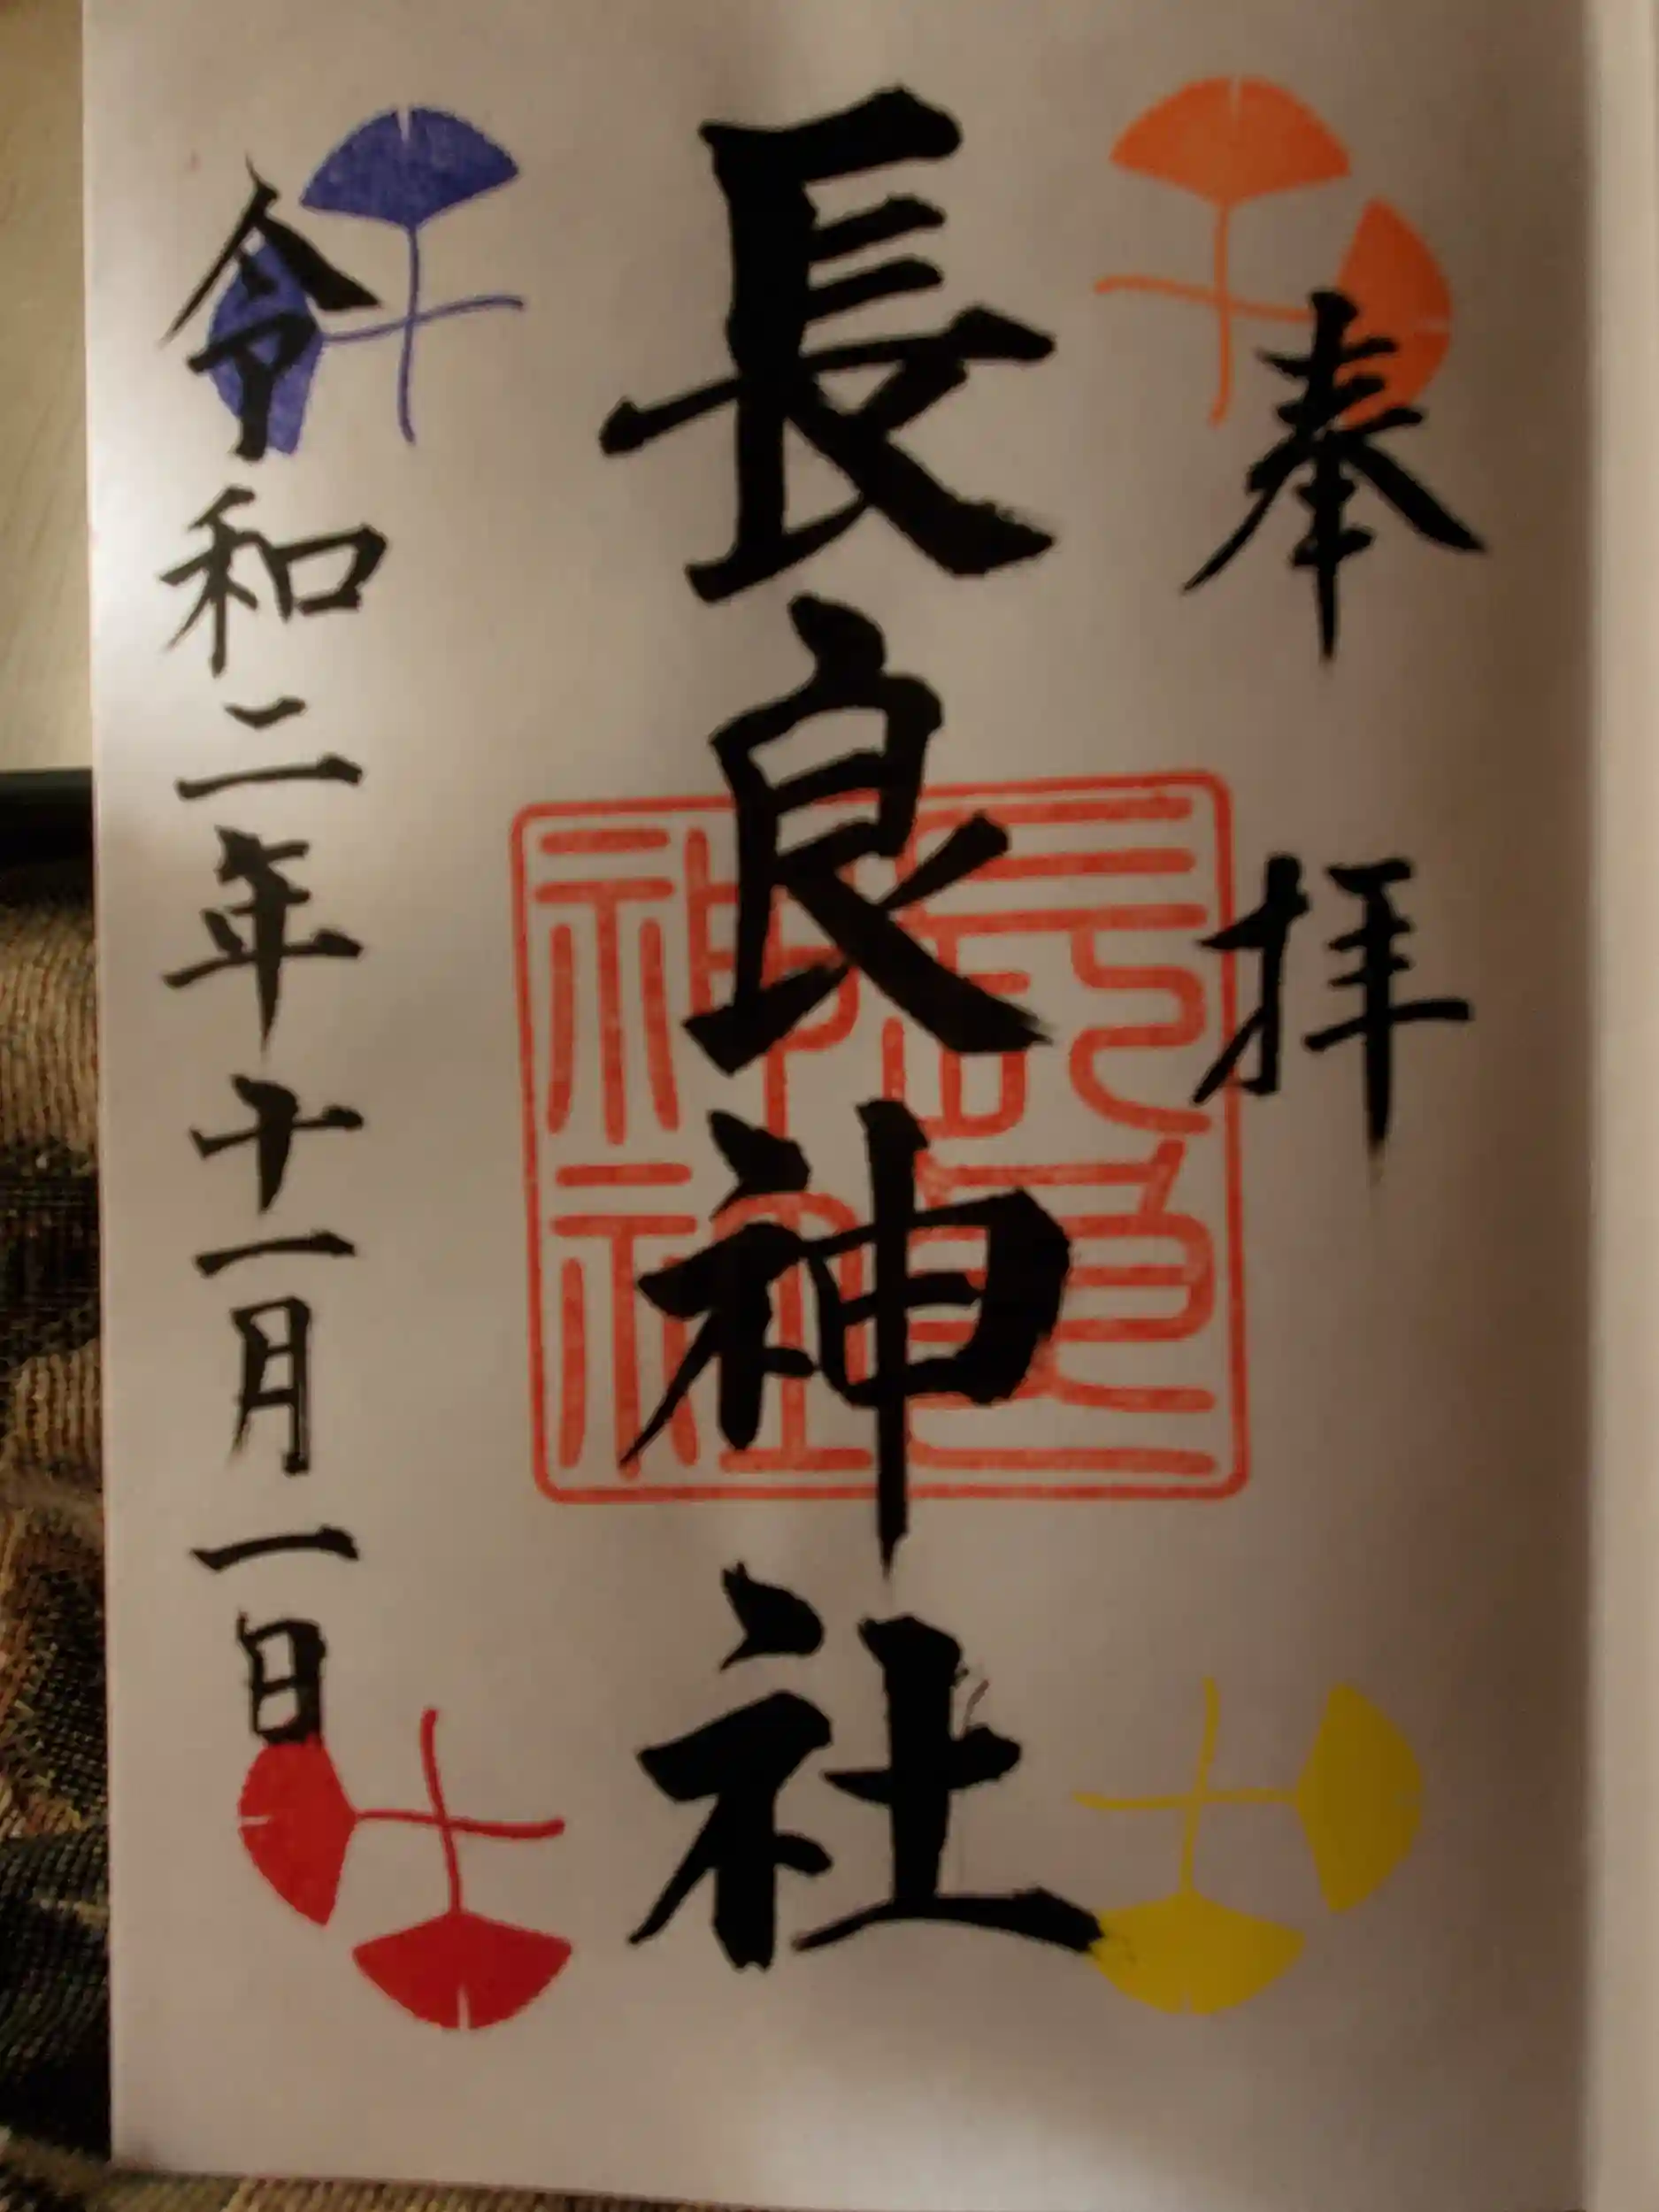 奉拝
長良神社
長良神社
令和二年十一月一日